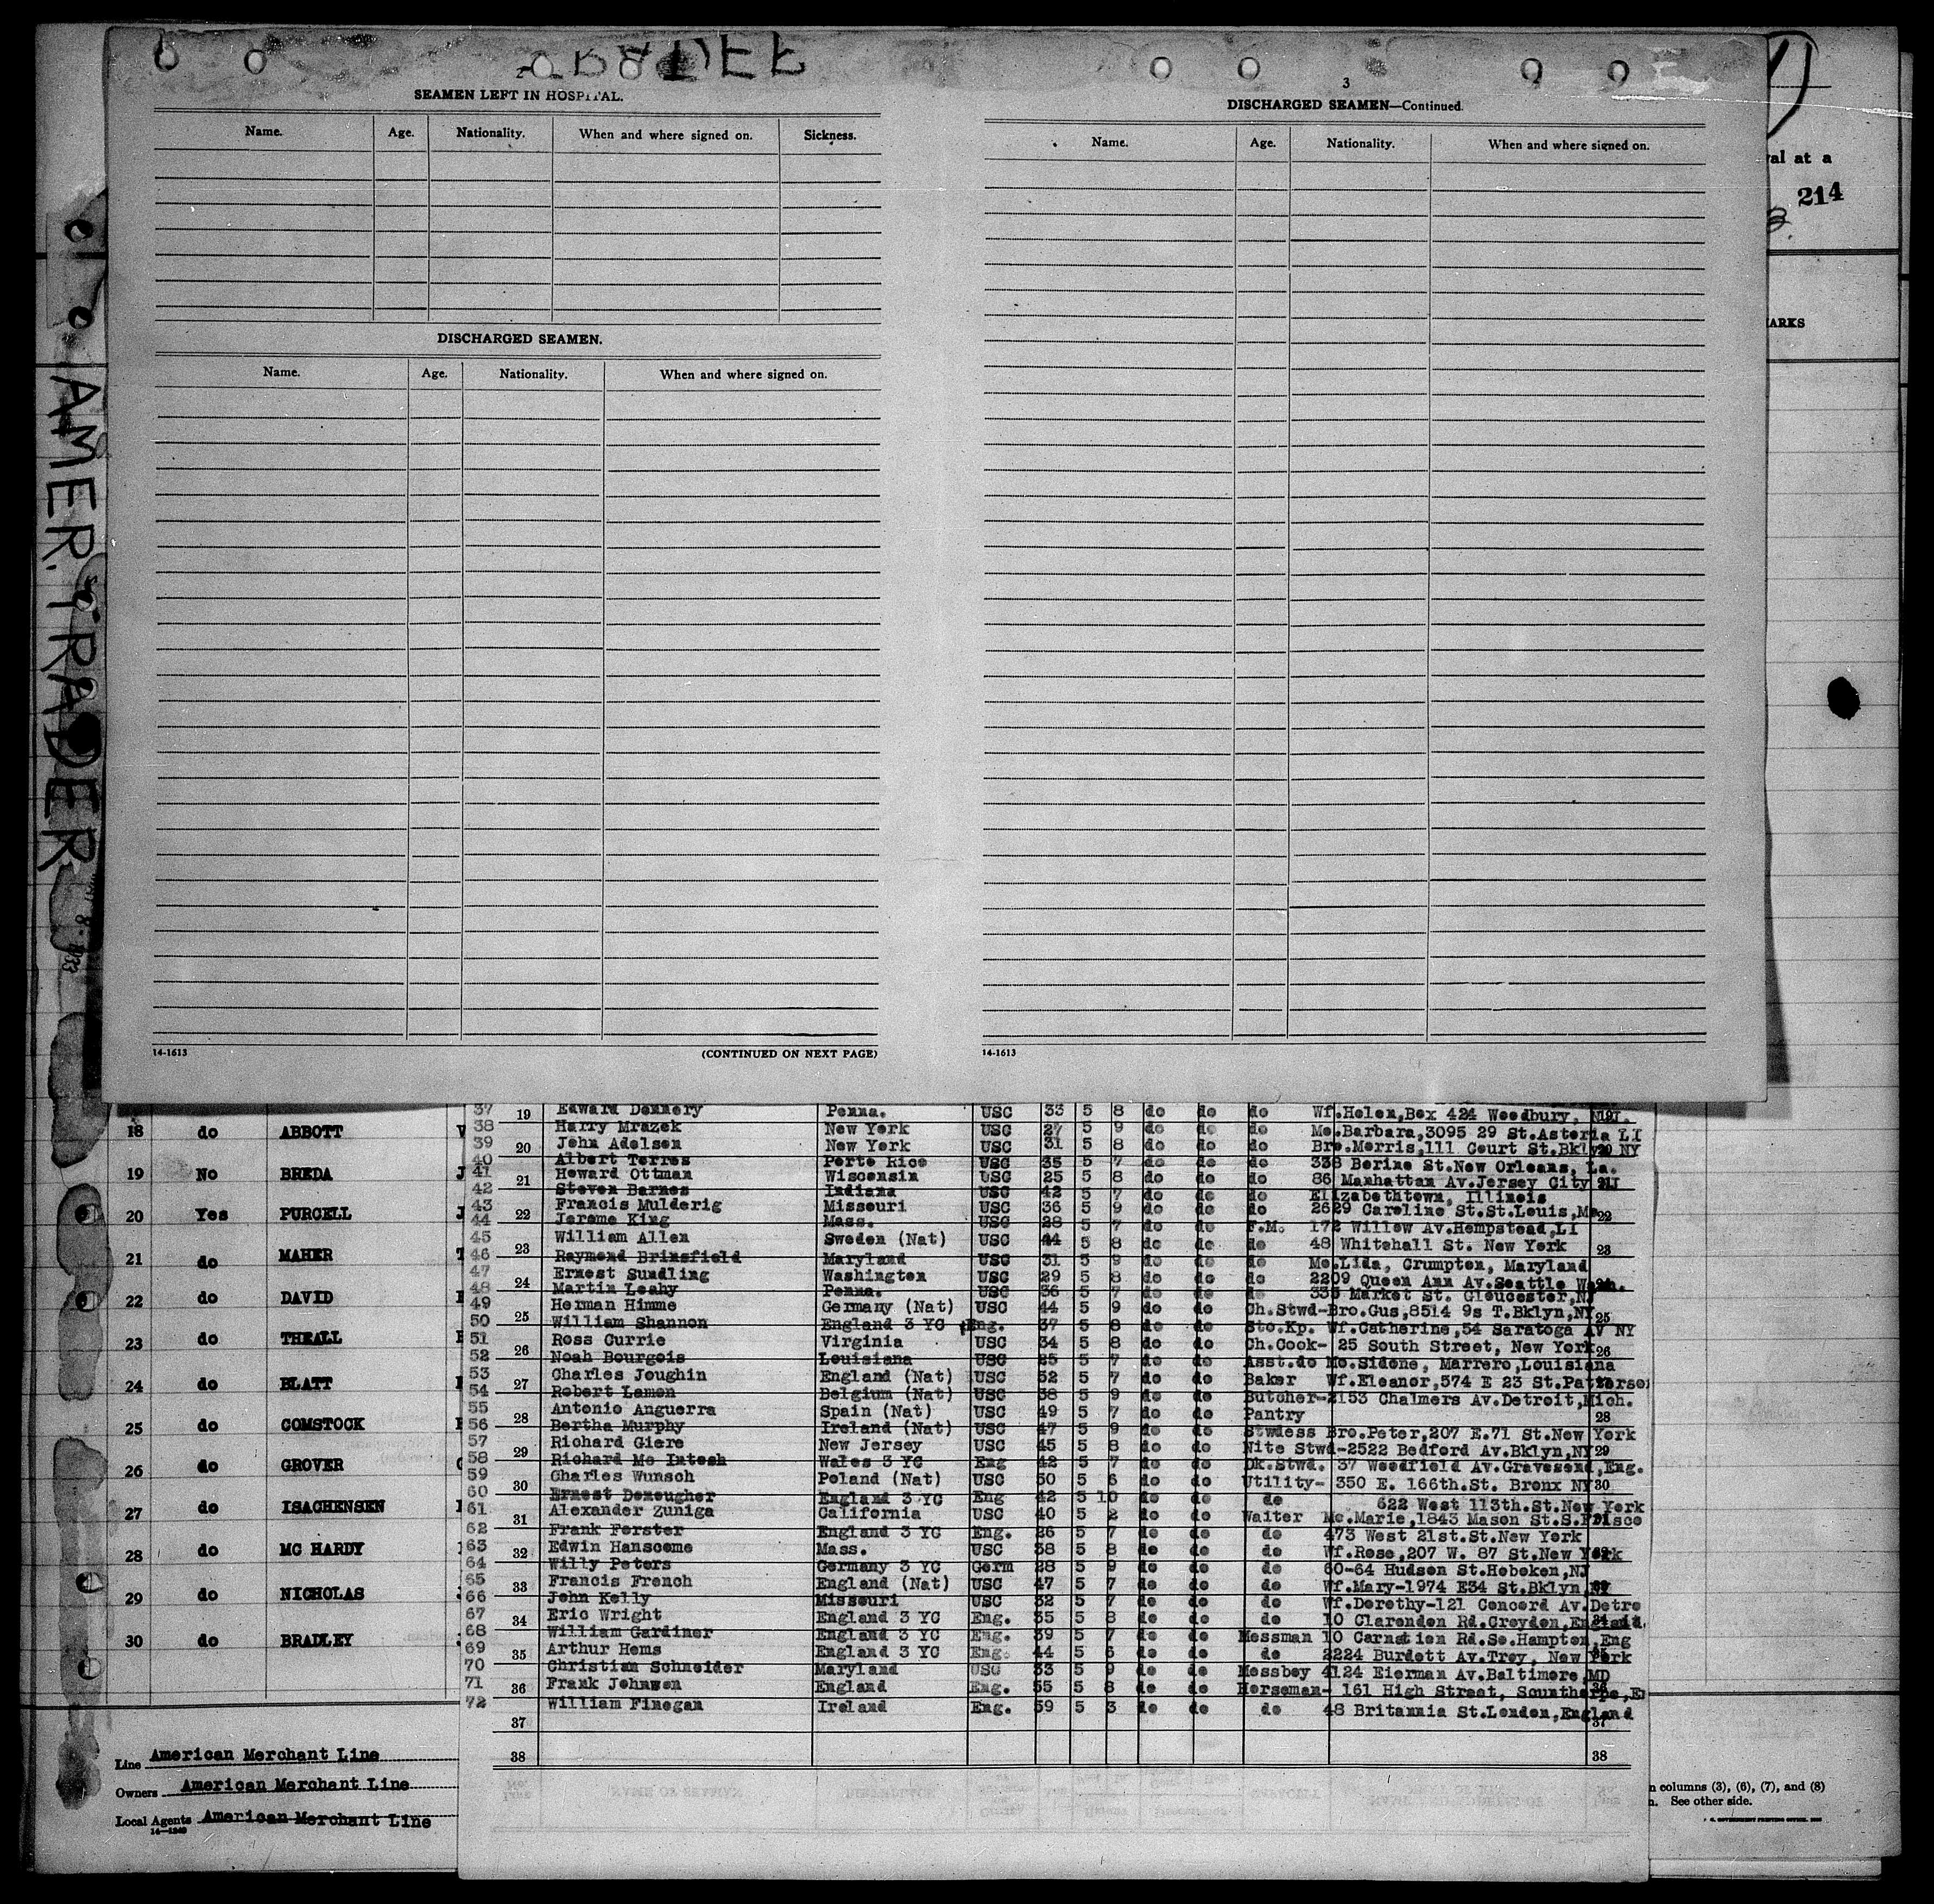 2
SEAMEN LEFT IN HOSPITAL.
Name. Age. Nationality. When and where signed on. Sickness.
DISCHARGED SEAMEN.
Name. Age. Nationality. When and where signed on.
14-1613 (CONTINUED ON NEXT PAGE)
3
DISCHARGED SEAMEN—Continued.
Name. Age. Nationality. When and where signed on.
14-1613
val at a
214
ARKS
AMER. TRADER
18 do ABBOTT
19 No BREDA
20 Yes PURCELL
21 do MAHER
22 do DAVID
23 do THRALL
24 do BLATT
25 do COMSTOCK
26 do GROVER
27 do ISACHENSEN
28 do MC HARDY
29 do NICHOLAS
30 do BRADLEY
Line American Merchant Line
Owners American Merchant Line
Local Agents American Merchant Line
37 19 Edward Dennery Penna. USC 33 5 8 do do do Wf.Helen,Box 424 Woodbury,
38 Harry Mrazek New York USC 27 5 9 do do do Mo.Barbara,3095 29 St.Astoria LI
39 20 John Adelson New York USC 31 5 8 do do do Bro.Morris,111 Court St.Bklyn NY
40 Albert Torres Porto Rico USC 35 5 7 do do do 338 Berine St.New Orleans, La.
41 21 Howard Ottman Wisconsin USC 25 5 8 do do do 86 Manhattan Av.Jersey City
42 Steven Barnes Indiana USC 42 5 7 do do do Elizabethtown, Illinois
43 22 Francis Mulderig Missouri USC 36 5 9 do do do 2629 Caroline St.St.Louis,Mo 22
44 Jerome King Mass. USC 28 5 7 do do F.M. 172 Willow Av.Hempstead,LI
45 23 William Allen Sweden (Nat) USC 44 5 8 do do do 48 Whitehall St. New York 23
46 Raymond Brinsfield Maryland USC 31 5 9 do do do Mo.Lida, Crumpton, Maryland
47 24 Ernest Sundling Washington USC 29 5 8 do do do 2209 Queen Ann Av.Seattle Wash.
48 Martin Leahy Penna. USC 36 5 7 do do do 335 Market St. Gloucester,NJ
49 25 Herman Himme Germany (Nat) USC 44 5 9 do do Ch.Stwd-Bro.Gus,8514 9s T.Bklyn,NY 25
50 William Shannon England 3 YC Eng. 37 5 8 do do Sto.Kp. Wf.Catherine,54 Saratoga AV NY
51 26 Ross Currie Virginia USC 34 5 8 do do Ch.Cook- 25 South Street, New York 26
52 Noah Bourgois Louisiana USC 25 5 7 do do Asst.do Mo.Sidone, Marrero,Louisiana
53 27 Charles Joughin England (Nat) USC 52 5 7 do do Baker Wf.Eleanor,574 E 23 St.Patterson
54 Robert Lamon Belgium (Nat) USC 38 5 9 do do Butcher-2153 Chalmers Av.Detroit,Mich.
55 28 Antonio Anguerra Spain (Nat) USC 49 5 7 do do Pantry 28
56 Bertha Murphy Ireland (Nat) USC 47 5 9 do do Stwdess Bro.Peter,207 E.71 St.New York
57 29 Richard Giere New Jersey USC 45 5 8 do do Nite Stwd-2522 Bedford Av.Bklyn,NY 29
58 Richard Mc Intosh Wales 3 YC Eng 42 5 7 do do Dk.Stwd. 37 Woodfield Av.Gravesend,Eng.
59 30 Charles Wunsch Poland (Nat) USC 50 5 6 do do Utility- 350 E. 166th.St. Bronx NY 30
60 Ernest Donougher England 3 YC Eng 42 5 10 do do do 622 West 113th.St.New York
61 31 Alexander Zuniga California USC 40 5 2 do do Waiter Mo.Marie,1843 Mason St.S.Frisco
62 Frank Forster England 3 YC Eng. 26 5 7 do do do 473 West 21st.St.New York
63 32 Edwin Hanscome Mass. USC 38 5 8 do do do Wf.Rose,207 W. 87 St.New York
64 Willy Peters Germany 3 YC Germ 28 5 9 do do do 60-64 Hudson St.Hoboken,NJ
65 33 Francis French England (Nat) USC 47 5 7 do do do Wf.Mary-1974 E34 St.Bklyn NY
66 John Kelly Missouri USC 32 5 7 do do do Wf.Dorothy-121 Concord Av.Detro
67 34 Eric Wright England 3 YC Eng. 35 5 8 do do do 10 Clarendon Rd.Croydon,England
68 William Gardiner England 3 YC Eng. 39 5 7 do do Messman 10 Carnation Rd.So.Hampton,Eng
69 35 Arthur Hems England 3 YC Eng. 44 5 6 do do do 2224 Burdett Av.Troy, New York
70 Christian Schneider Maryland USC 33 5 9 do do Messboy 4124 Eierman Av.Baltimore,MD
71 36 Frank Johnson England Eng. 55 5 8 do do Horseman- 161 High Street, Scunthorpe,En
72 William Finegan Ireland Eng. 59 5 3 do do do 48 Britannia St.London,England
37 37
38 38
n columns (3), (6), (7), and (8)
n. See other side.